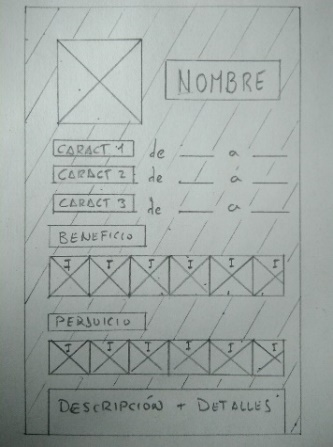 NOMBRE
CARACT 1 de ___ a ___
CARACT 2 de ___ a ___
CARACT 3 de ___ a ___
BENEFICIO
I I I I I I
PERJUICIO
I I I I I I
DESCRIPCIÓN + DETALLES